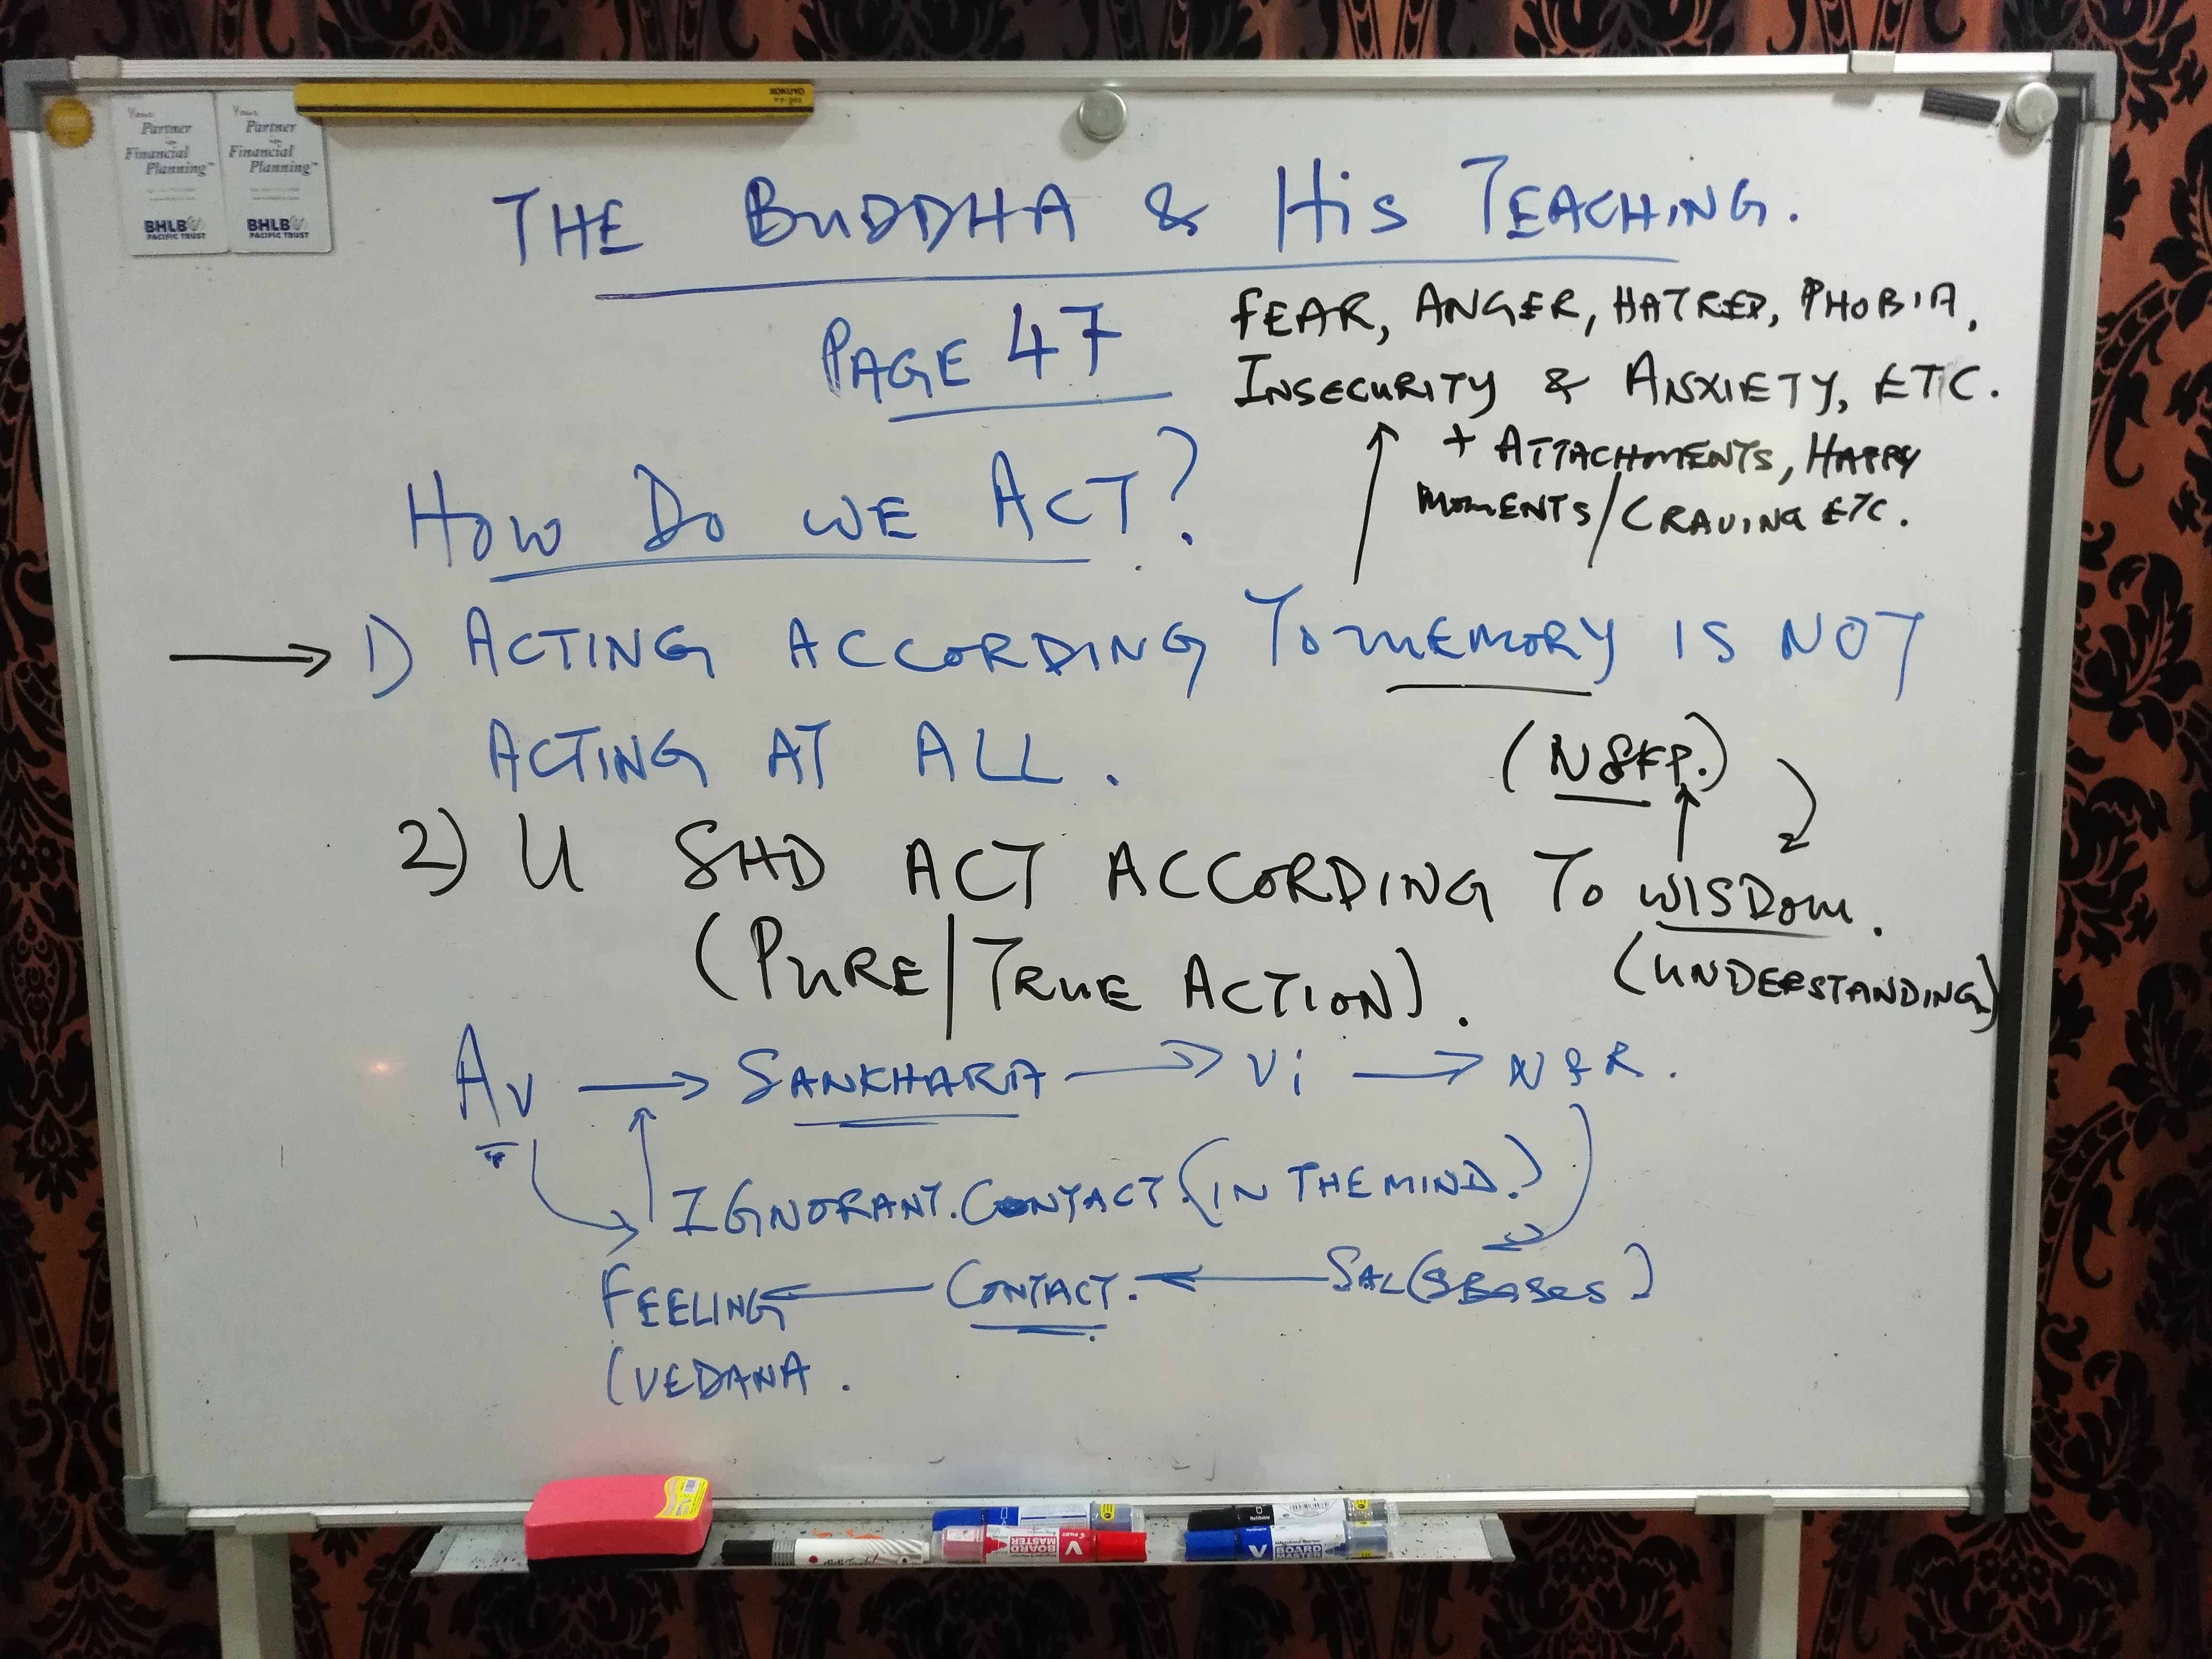 Your Partner in Financial Planning™
BHLB
PACIFIC TRUST
Your Partner in Financial Planning™
BHLB
PACIFIC TRUST
THE BUDDHA & HIS TEACHING.
PAGE 47
FEAR, ANGER, HATRED, PHOBIA,
INSECURITY & ANXIETY, ETC.
+ ATTACHMENTS, HAPPY
MOMENTS/CRAVING ETC.
HOW DO WE ACT?
→ 1) ACTING ACCORDING TO MEMORY IS NOT
ACTING AT ALL.
(N8FP.)
2) U SHD ACT ACCORDING TO WISDOM.
(PURE/TRUE ACTION).
(UNDERSTANDING)
AV → SANKHARA → Vi → N&R.
IGNORANT. CONTACT. (IN THE MIND.)
FEELING ← CONTACT. ← SAL(SBASES)
(VEDANA.
BOARD MASTER
BOARD MASTER